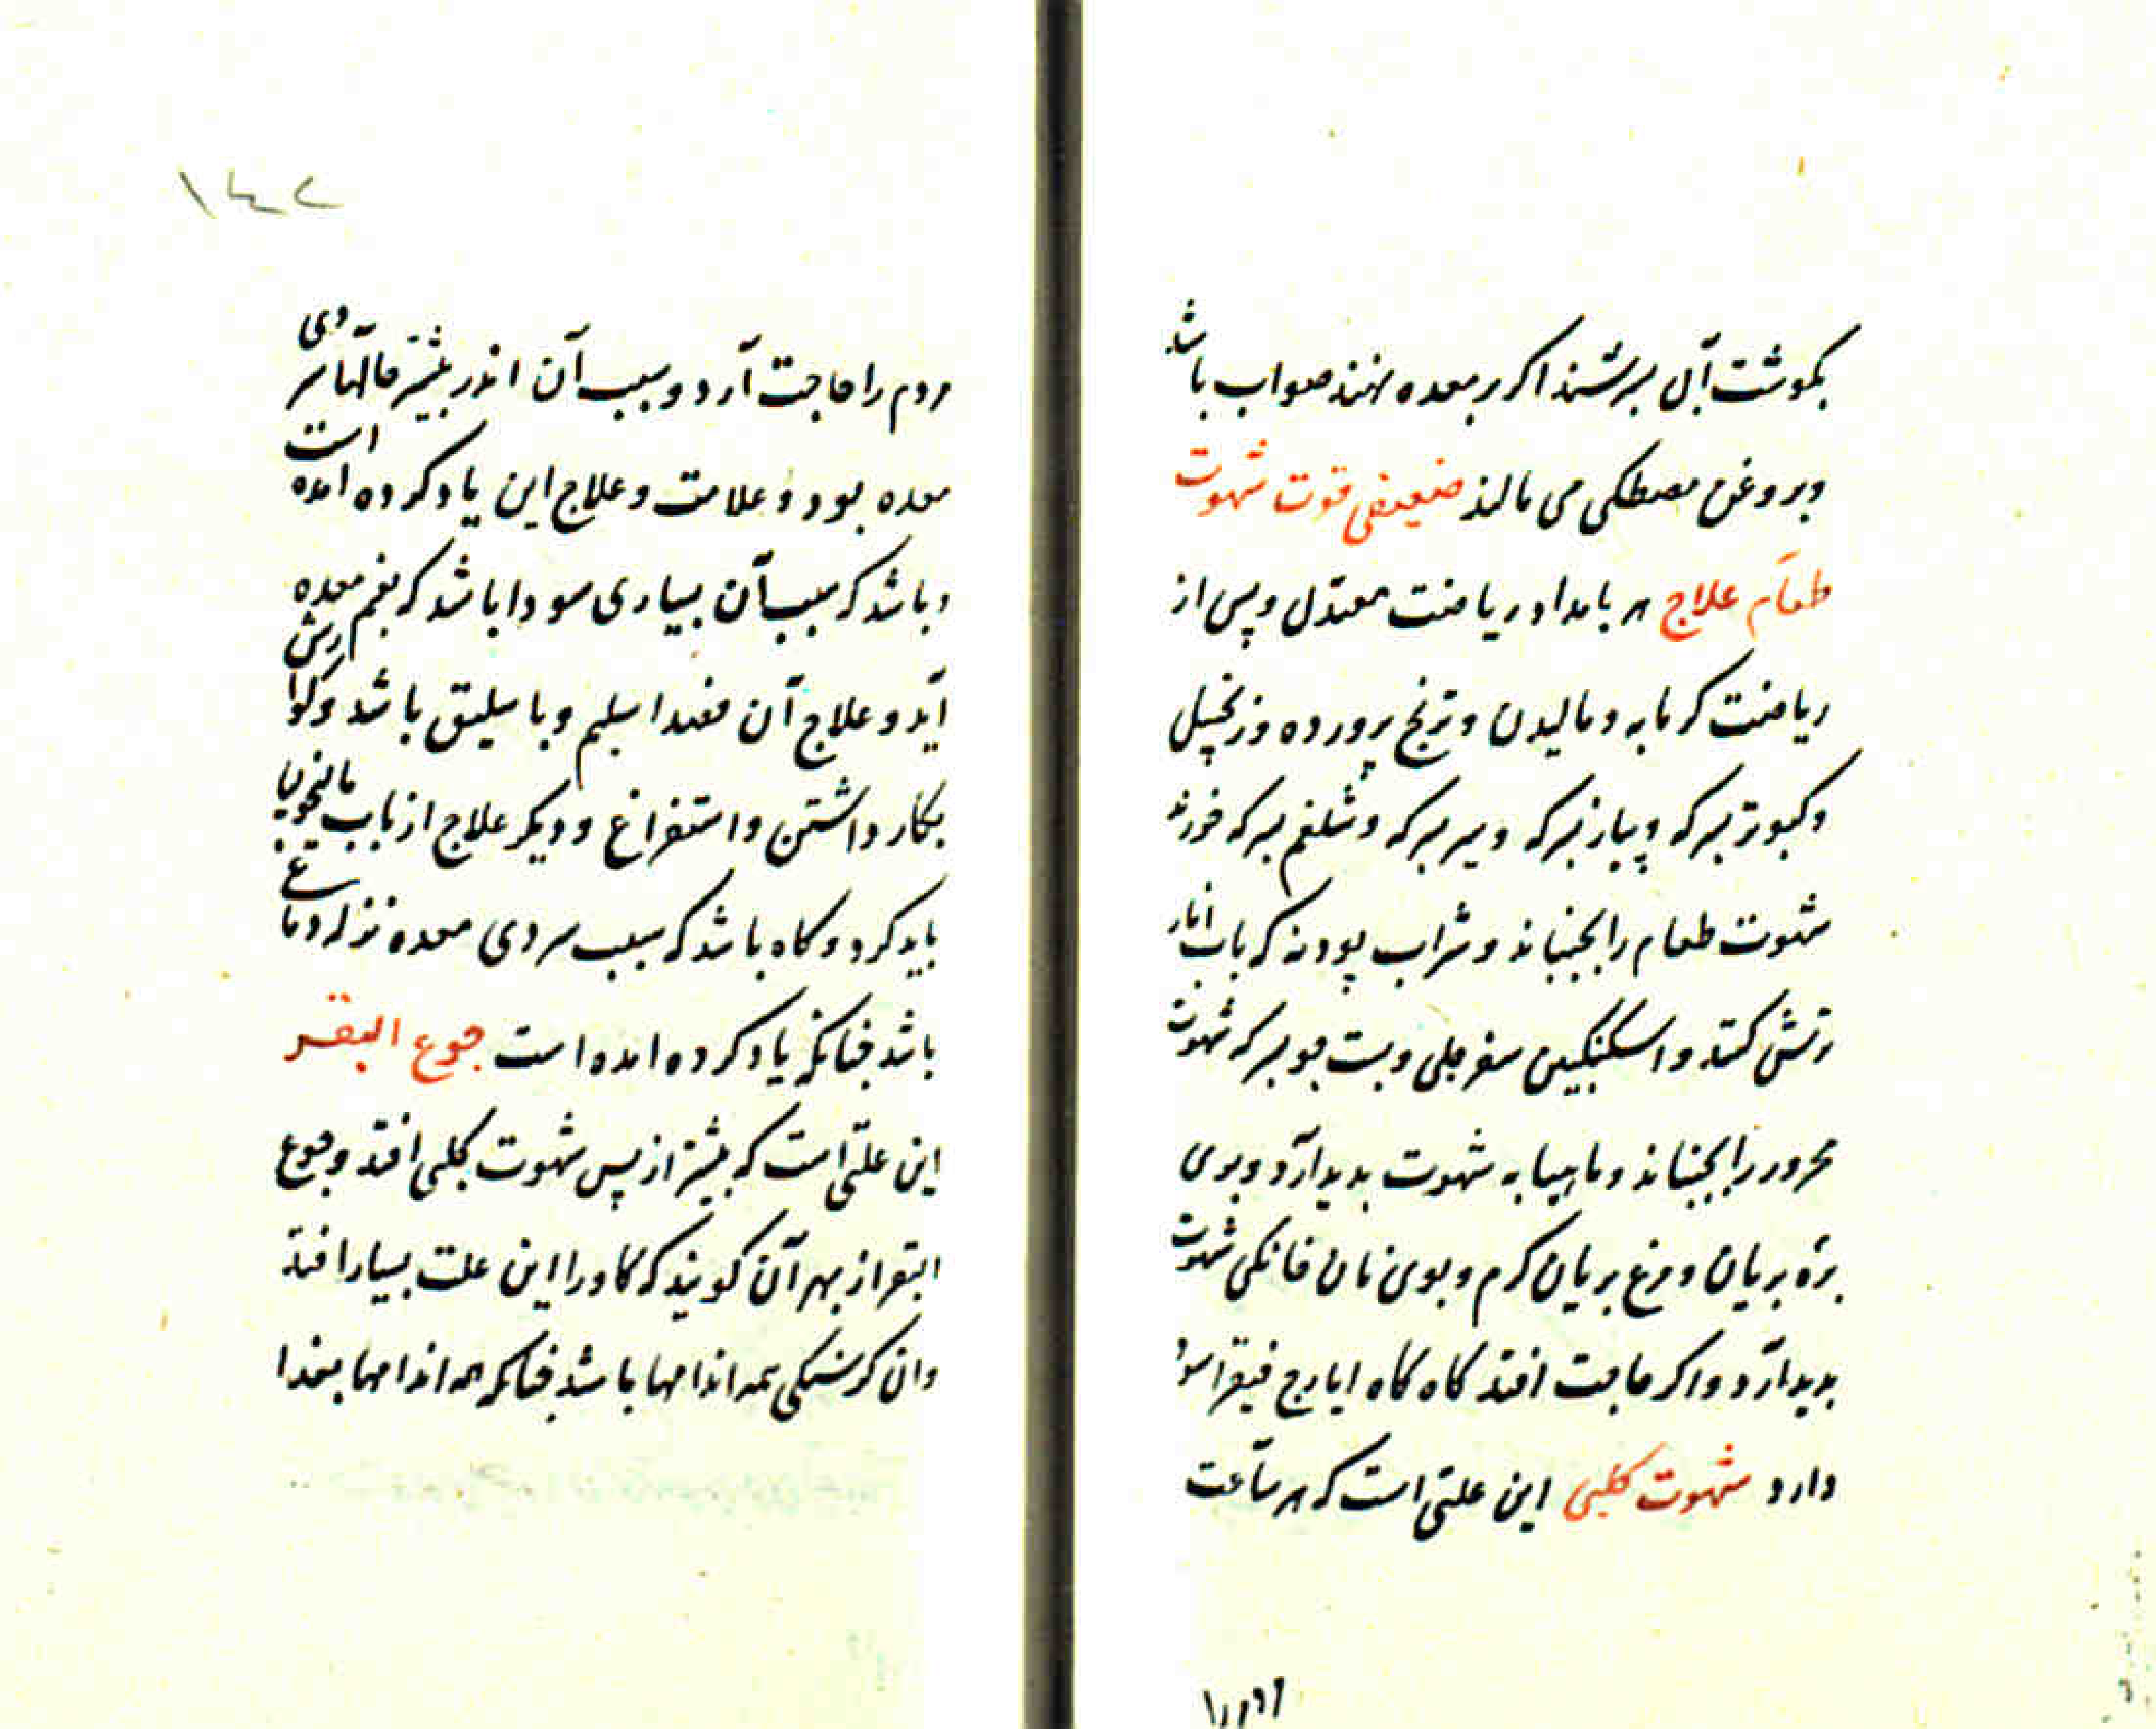 بکوشت آبی بسرشند اکر بر معده نهند صواب باشد
وبروغن مصطکی می مالند ضعیفی قوت شهوت
طعام علاج هر بامداد ریاضت معتدل وپس از
ریاضت کرمابه ومالیدن وترنج پرورده وزنجبیل
وکبوتر بسرکه وپیاز بسرکه وسیر بسرکه وشلغم بسرکه خورند
شهوت طعام را بجنباند وشراب پودنه که باب انار
ترش کنند واسکنکبین سفرجلی وپست جو بسرکه شهوت
محرور را بجنباند وماهیابه شهوت بدید آرد وبوی
بره بریان ومرغ بریان کرم وبوی نان خانکی شهوت
بدید آرد واکر حاجت افتد کاه کاه ایارج فیقرا سود
دارد شهوت کلبی این علتی است که هر ساعت
۱۴۲
مردم را حاجت آرد وسبب آن اندر بیشتر حالها سردی
معده بود وعلامت وعلاج این یاد کرده امده است
وباشد که سبب آن بسیاری سودا باشد که بفم معده
آید وعلاج آن فصد اسیلم وباسلیق باشد وکوارش
بکار داشتن واستفراغ ودیکر علاج از باب مالیخولیا
باید کرد وکاه باشد که سبب سردی معده نزله دماغ
باشد چنانکه یاد کرده امده است جوع البقر
این علتی است که بیشتر از پس شهوت کلبی افتد وجوع
البقر از بهر آن کویند که کاو را این علت بسیار افتد
وان کرسنکی همه اندامها باشد چنانکه همه اندامها بغذا